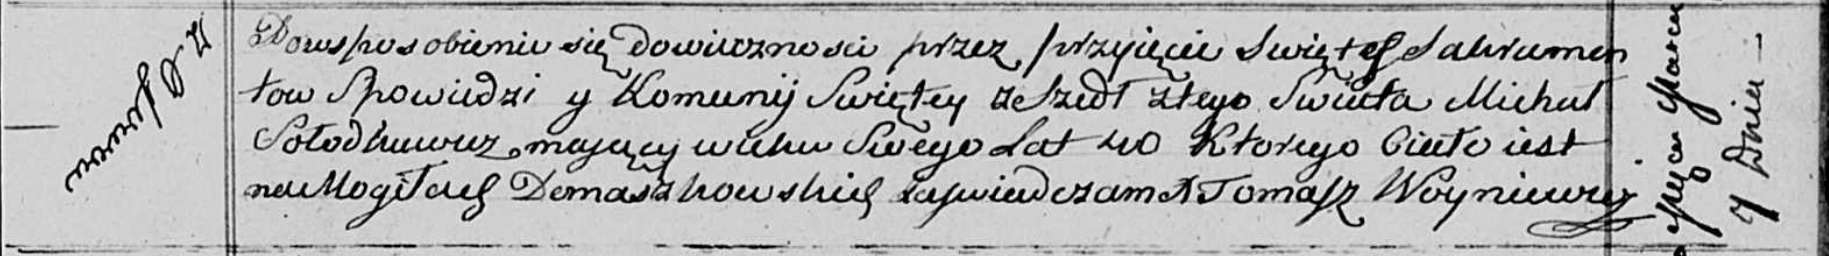 Dowsposobieniu się dowieczności przez przyięcie Swiętych Sakramen
tow Spowiedzi y Komunij Swiętey zeszedł ztego Swiata Michał
Sołodkiewicz maiący wieku Swego Lat 40 Ktorego Ciało iest
na Mogiłach Domaszkowskich zaświadczam X Tomasz Woyniewicz
Marca
7 Dnia